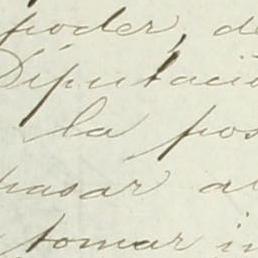 poder, de
Diputació
la pos
pasar al
tomar in